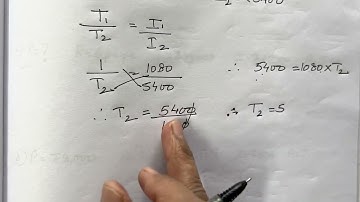 5400
T₁/T₂ = I₁/I₂
1/T₂ = 1080/5400 ∴ 5400 = 1080×T₂
∴ T₂ = 5400/ ∴ T₂ = 5